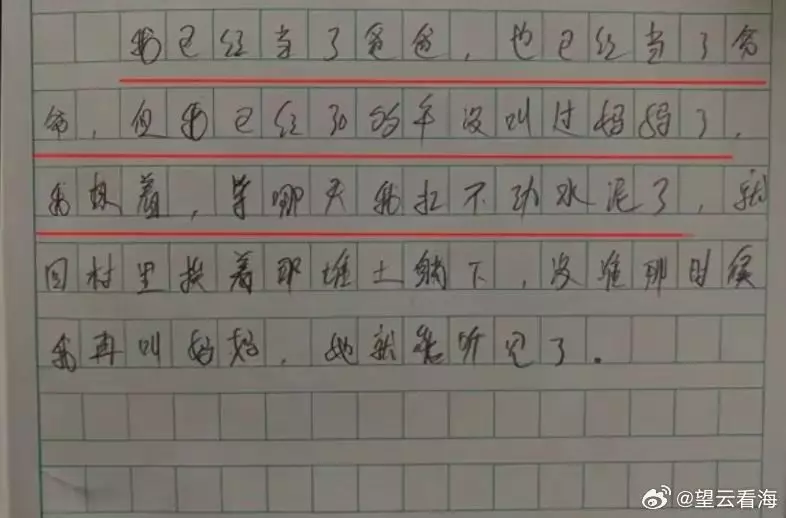 我已经当了爸爸，也已经当了爷
爷，但我已经30的年没叫过妈妈了，
我想着，等哪天我扛不动水泥了，就
回村里挨着那堆土躺下，没准那时候
我再叫妈妈，她就能听见了。
@望云看海